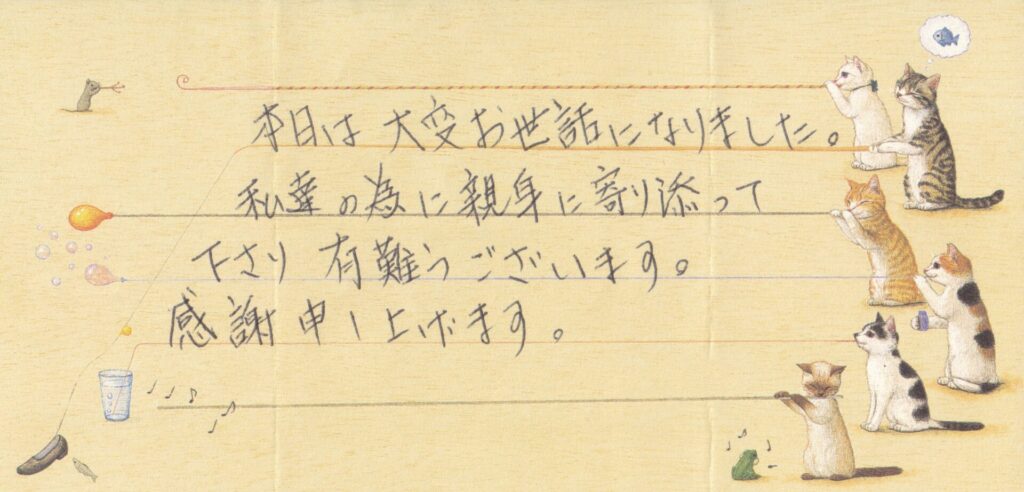 本日は大変お世話になりました。
私達の為に親身に寄り添って
下さり有難うございます。
感謝申し上げます。